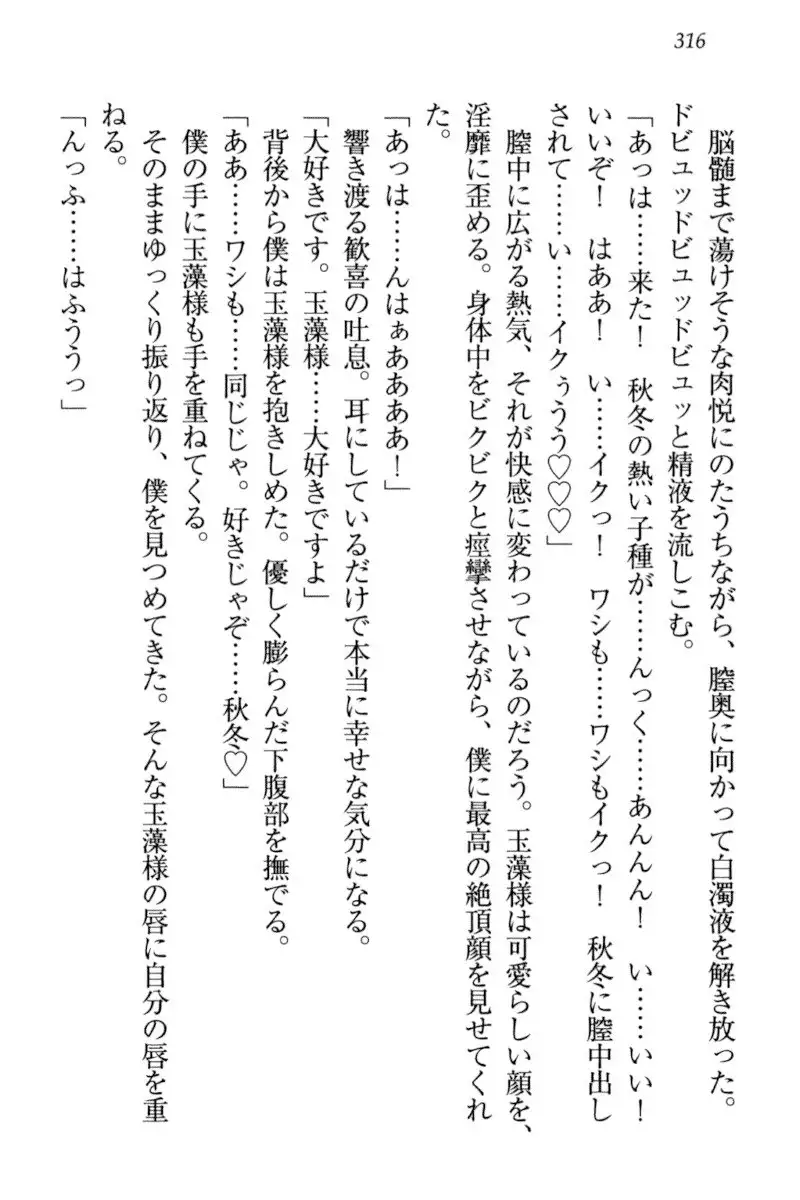 316
脳髄まで蕩けそうな肉悦にのたうちながら、膣奥に向かって白濁液を解き放った。
ドビュッドビュッドビュッと精液を流しこむ。
「あっは……来た！　秋冬の熱い子種が……んっく……あんんん！　い……いい！
いいぞ！　はああ！　い……イクっ！　ワシも……ワシもイクっ！　秋冬に膣中出し
されて……い……イクぅうう♡♡♡」
膣中に広がる熱気、それが快感に変わっているのだろう。玉藻様は可愛らしい顔を、
淫靡に歪める。身体中をビクビクと痙攣させながら、僕に最高の絶頂顔を見せてくれ
た。
「あっは……んはぁあああ！」
響き渡る歓喜の吐息。耳にしているだけで本当に幸せな気分になる。
「大好きです。玉藻様……大好きですよ」
背後から僕は玉藻様を抱きしめた。優しく膨らんだ下腹部を撫でる。
「ああ……ワシも……同じじゃ。好きじゃぞ……秋冬♡」
僕の手に玉藻様も手を重ねてくる。
そのままゆっくり振り返り、僕を見つめてきた。そんな玉藻様の唇に自分の唇を重
ねる。
「んっふ……はふううっ」